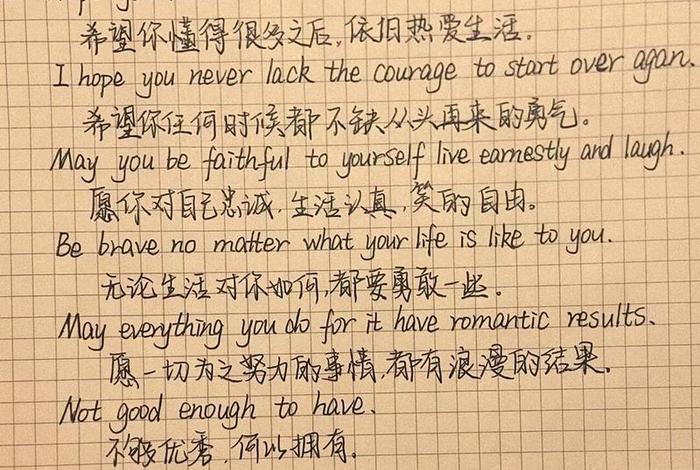 希望你懂得很多之后,依旧热爱生活。
I hope you never lack the courage to start over agan.
希望你任何时候都不缺从头再来的勇气。
May you be faithful to yourself live earnestly and laugh.
愿你对自己忠诚,生活认真,笑的自由。
Be brave no matter what your life is like to you.
无论生活对你如何,都要勇敢一些。
May everything you do for it have romantic results.
愿一切为之努力的事情,都有浪漫的结果。
Not good enough to have.
不够优秀,何以拥有。